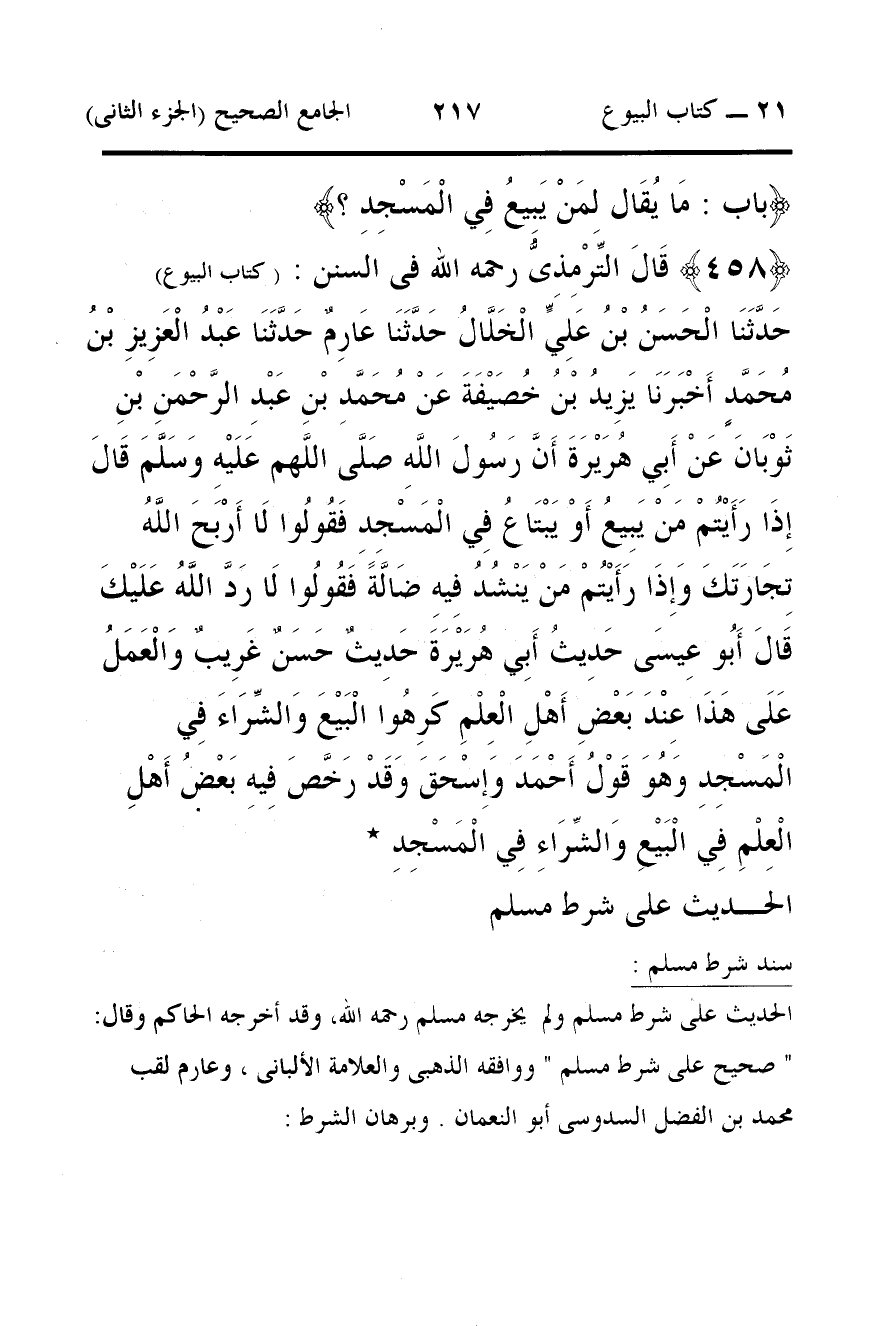 ٢١ ــ كتاب البيوع ٢١٧ الجامع الصحيح (الجزء الثانى)
﴿باب : مَا يُقَال لِمَنْ يَبِيعُ فِي الْمَسْجِدِ ؟﴾
﴿٤٥٨﴾ قَالَ التِّرْمذىُّ رحمه الله فى السنن : ( كتاب البيوع)
حَدَّثَنَا الْحَسَنُ بْنُ عَلِيٍّ الْخَلَّالُ حَدَّثَنَا عَارِمٌ حَدَّثَنَا عَبْدُ الْعَزِيزِ بْنُ
مُحَمَّدٍ أَخْبَرَنَا يَزِيدُ بْنُ خُصَيْفَةَ عَنْ مُحَمَّدِ بْنِ عَبْدِ الرَّحْمَنِ بْنِ
ثَوْبَانَ عَنْ أَبِي هُرَيْرَةَ أَنَّ رَسُولَ اللَّهِ صَلَّى اللَّهم عَلَيْهِ وَسَلَّمَ قَالَ
إِذَا رَأَيْتُمْ مَنْ يَبِيعُ أَوْ يَبْتَاعُ فِي الْمَسْجِدِ فَقُولُوا لَا أَرْبَحَ اللَّهُ
تِجَارَتَكَ وَإِذَا رَأَيْتُمْ مَنْ يَنْشُدُ فِيهِ ضَالَّةً فَقُولُوا لَا رَدَّ اللَّهُ عَلَيْكَ
قَالَ أَبُو عِيسَى حَدِيثُ أَبِي هُرَيْرَةَ حَدِيثٌ حَسَنٌ غَرِيبٌ وَالْعَمَلُ
عَلَى هَذَا عِنْدَ بَعْضِ أَهْلِ الْعِلْمِ كَرِهُوا الْبَيْعَ وَالشِّرَاءَ فِي
الْمَسْجِدِ وَهُوَ قَوْلُ أَحْمَدَ وَإِسْحَقَ وَقَدْ رَخَّصَ فِيهِ بَعْضُ أَهْلِ
الْعِلْمِ فِي الْبَيْعِ وَالشِّرَاءِ فِي الْمَسْجِدِ *
الحـــديث على شرط مسلم
سند شرط مسلم :
الحديث على شرط مسلم ولم يخرجه مسلم رحمه الله، وقد أخرجه الحاكم وقال:
" صحيح على شرط مسلم " ووافقه الذهبى والعلامة الألبانى ، وعارم لقب
محمد بن الفضل السدوسى أبو النعمان . وبرهان الشرط :